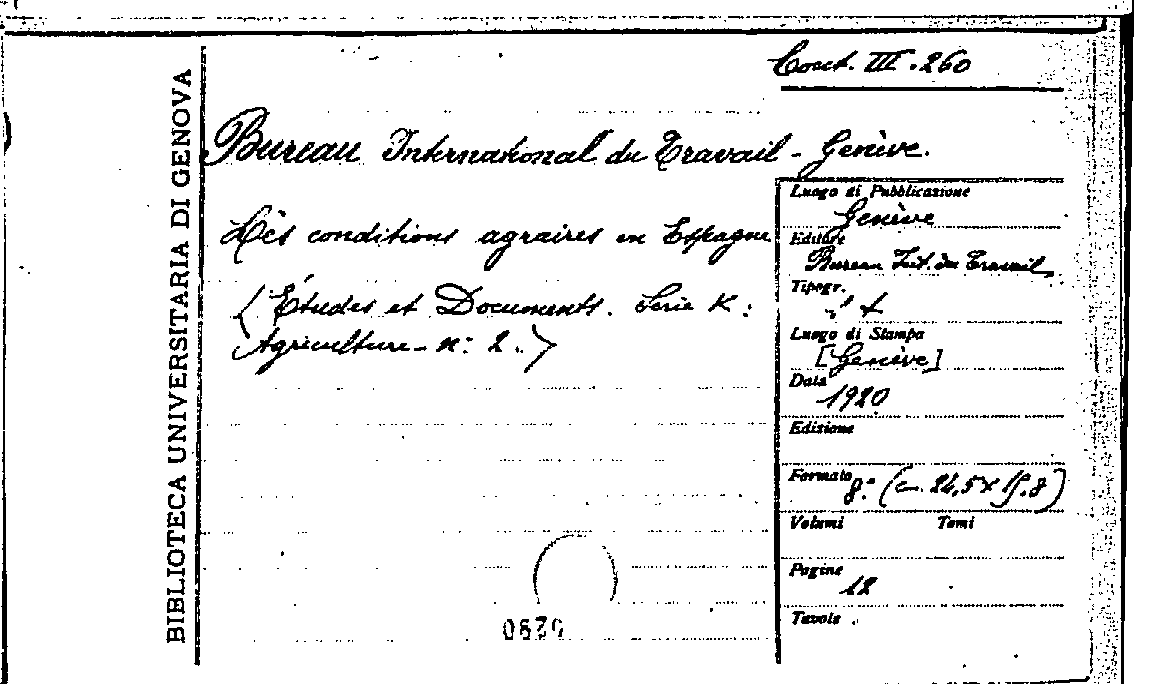 Cont. III. 260
BIBLIOTECA UNIVERSITARIA DI GENOVA
Bureau International du Travail - Genève.
Lès conditions agraires en Espagne
(Études et Documents. Serie K:
Agriculture - n: 2.)
Luogo di Pubblicazione
Genève
Editore
Bureau Int. du Travail
Tipogr.
Luogo di Stampa
[Genève]
Data
1920
Edizione
Formato 8.° (c. 24,5 x 15,8)
Volumi Tomi
Pagine
12
Tavole